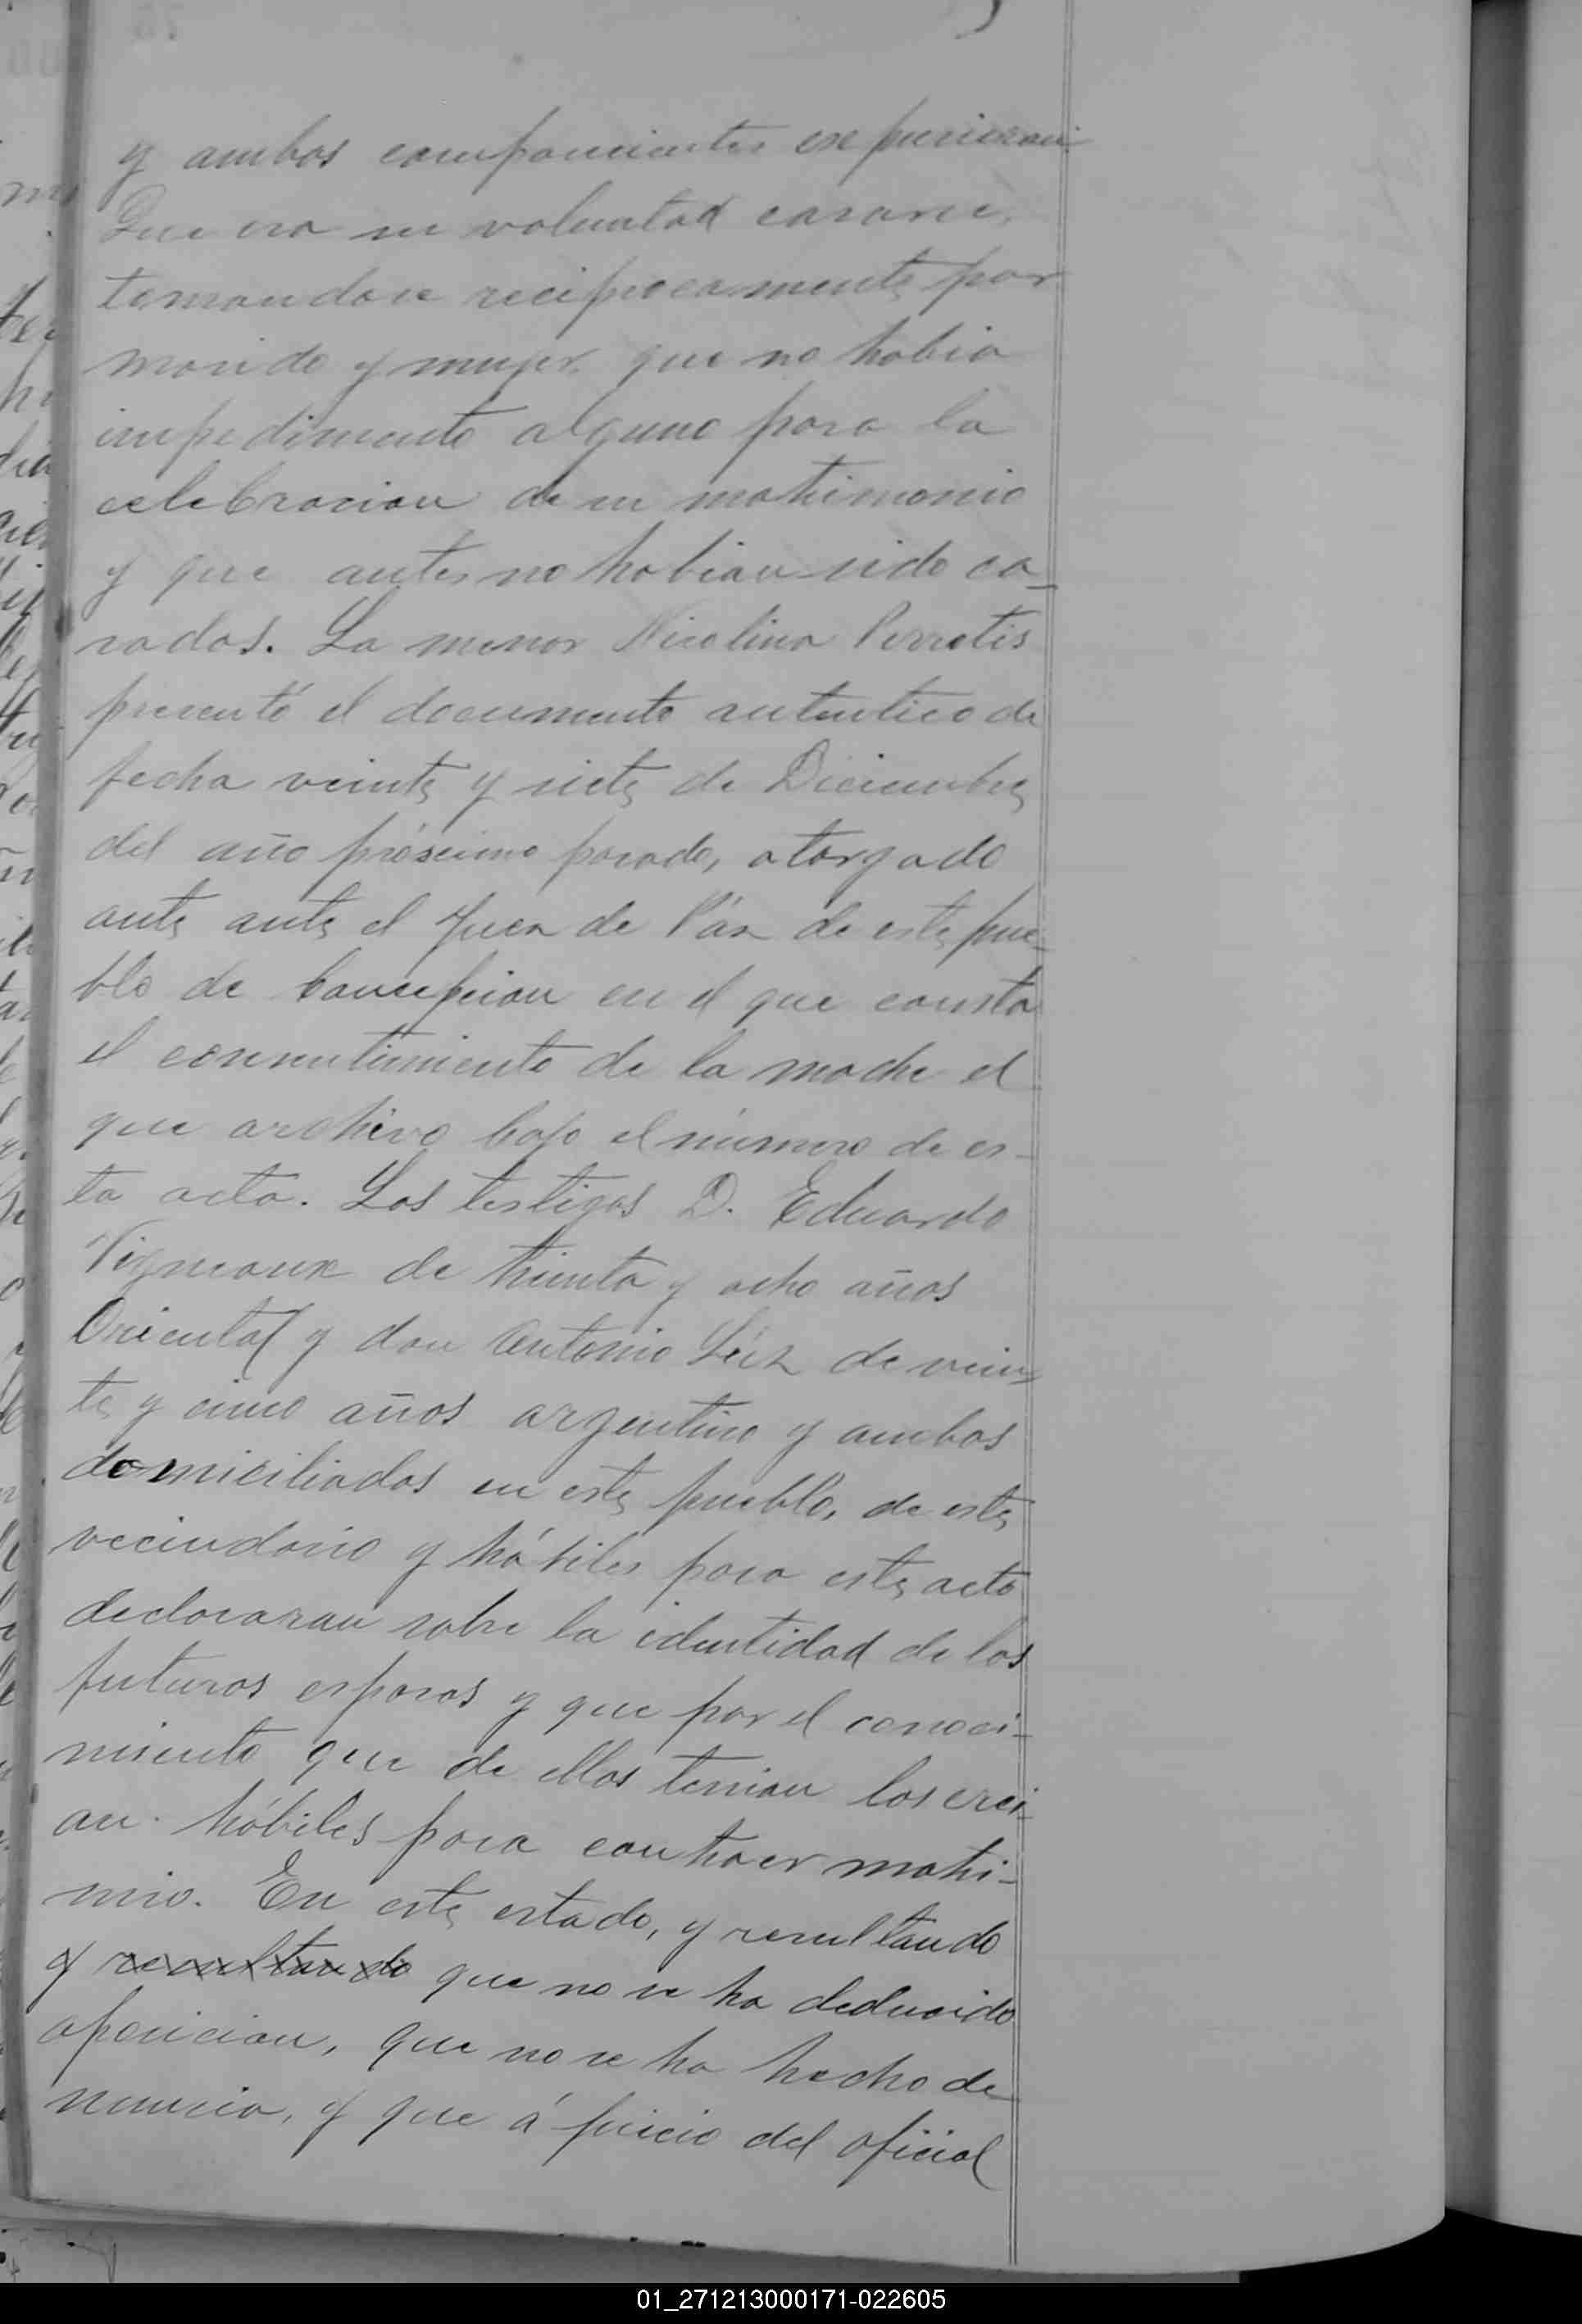 y ambos comparecientes expusieron:
Que era su voluntad casarse,
tomandose reciprocamente por
marido y mujer, que no habia
impedimento alguno para la
celebracion de su matrimonio
y que antes no habian sido ca-
sados. La menor Nicolina Perrotis
presentó el documento autentico de
fecha veinte y siete de Diciembre
del año próximo pasado, otorgado
ante ante el Juez de Páz de este pue-
blo de Concepcion en el que consta
el consentimiento de la madre el
que archivo bajo el número de es-
ta acta. Los testigos D. Eduardo
Vigneaux de treinta y ocho años
Oriental y don Antonio de vein-
te y cinco años argentino y ambos
domiciliados en este pueblo, de este
vecindario y hábiles para este acto
declararan sobre la identidad de los
futuros esposos y que por el conoci-
miento que de ellos tenian los crei-
an hábiles para contraer matri-
nio. En este estado, y resultando
y resultando que no se ha deducido
oposicion, que no se ha hecho de-
nuncia, y que á juicio del oficial
01_271213000171-022605